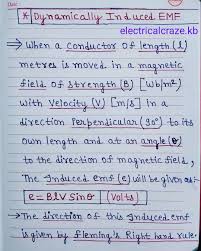 Date:
* Dynamically Induced EMF
electricalcraze.kb
⇒ When a conductor of length (l)
metres is moved in a magnetic
field of strength (B) [Wb/m²]
with velocity (V) [m/s] in a
direction Perpendicular (90°) to
its own length and at an angle (θ)
to the direction of magnetic field,
The Induced emf (e) will be given as:-
e = BlV Sinθ (Volts)
→ The direction of this Induced emf
is given by Fleming's Right hand rule.